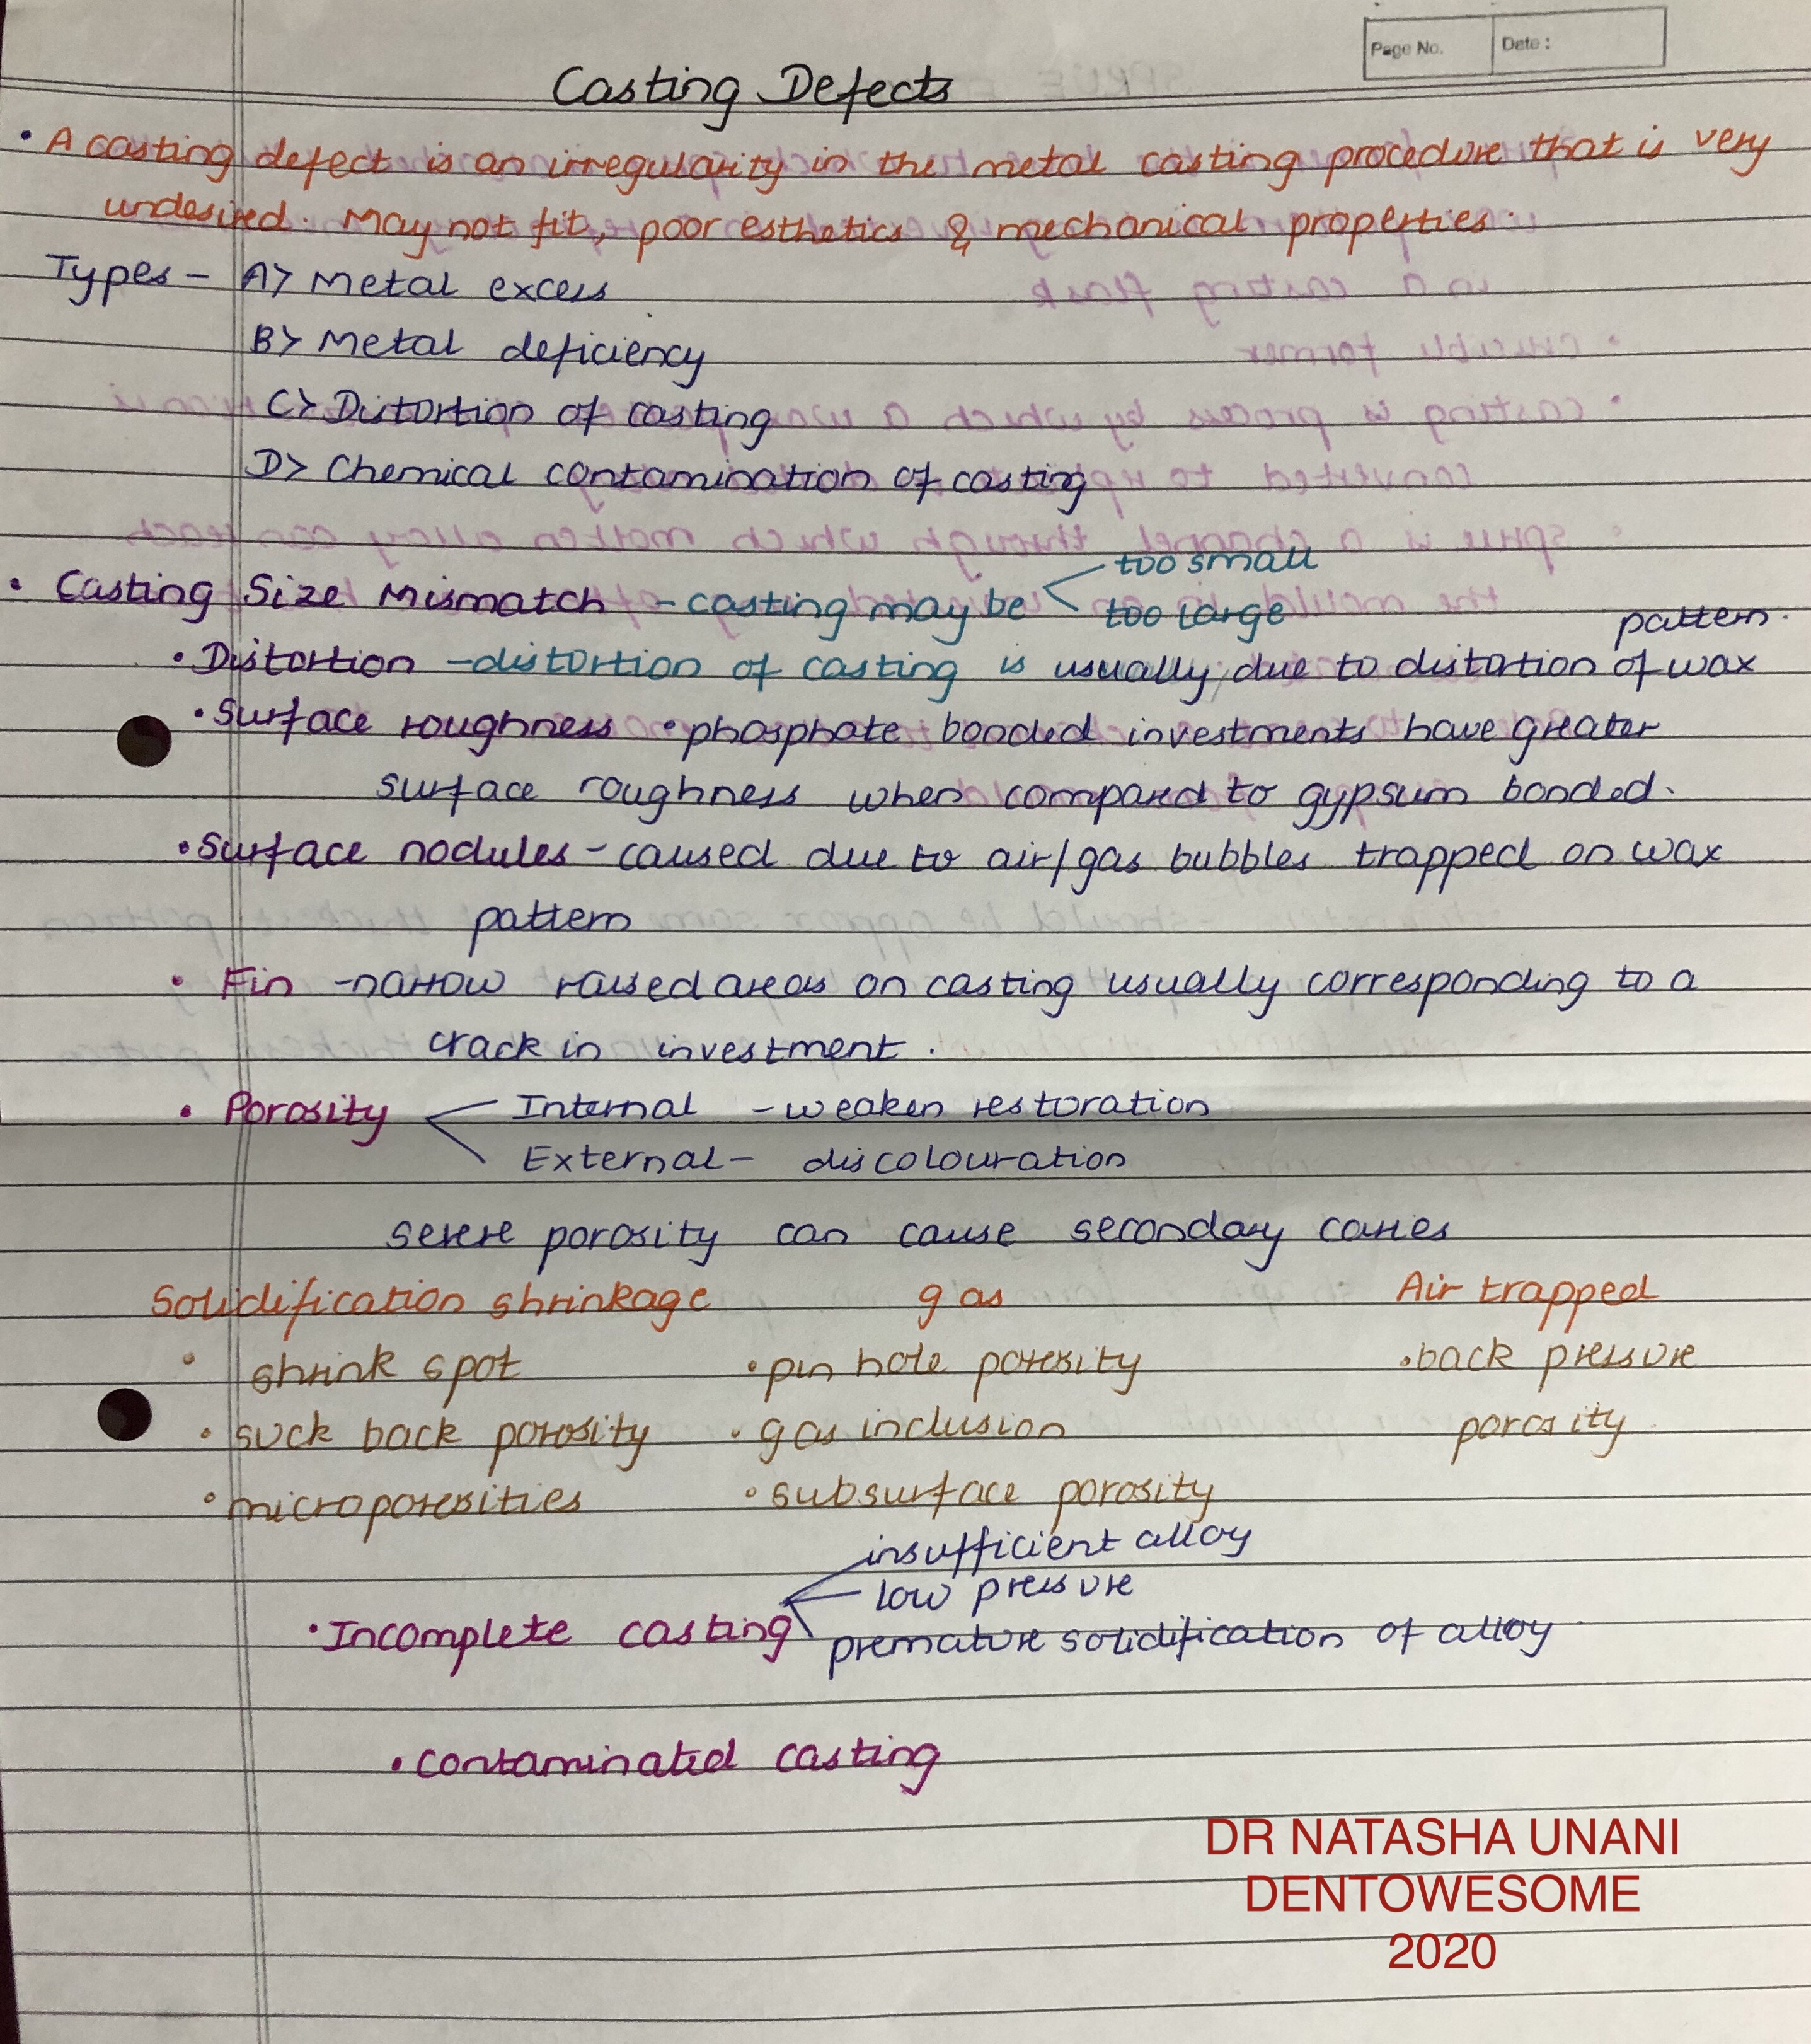 Page No.
Date :
Casting Defects
• A casting defect is an irregularity in the metal casting procedure that is very
undesired. May not fit, poor esthetics & mechanical properties.
Types - A> Metal excess
B> Metal deficiency
C> Distortion of casting
D> Chemical contamination of casting
too small
• Casting Size Mismatch - casting may be
too large
pattern.
• Distortion - distortion of casting is usually due to distortion of wax
• Surface roughness • phosphate bonded investments have greater
surface roughness when compared to gypsum bonded.
• Surface nodules - caused due to air/gas bubbles trapped on wax
pattern
• Fin - narrow raised areas on casting usually corresponding to a
crack in investment.
• Porosity Internal - weaken restoration
External - discolouration
severe porosity can cause secondary caries
Solidification shrinkage gas Air trapped
• shrink spot • pin hole porosity • back pressure
• suck back porosity • gas inclusion porosity
• microporosities • subsurface porosity
insufficient alloy
low pressure
• Incomplete casting premature solidification of alloy
• Contaminated casting
DR NATASHA UNANI
DENTOWESOME
2020